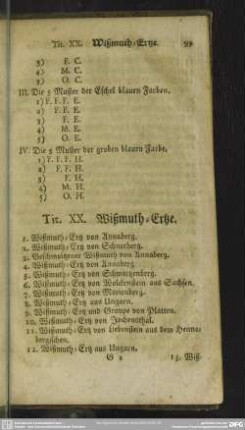 Tit. XX. Wißmuth-Ertze. 99
3) F. C.
4) M. C.
5) O. C.
III. Die 5 Muster der Eschel blauen Farben.
1) F. F. F. E.
2) F. F. E.
3) F. E.
4) M. E.
5) O. E.
IV. Die 5 Muster der groben blauen Farbe.
1) F. F. F. H.
2) F. F. H.
3) F. H.
4) M. H.
5) O. H.
Tit. XX. Wißmuth-Ertze.
1. Wißmuth-Ertz von Annaberg.
2. Wißmuth-Ertz von Schneeberg.
3. Geschmoltzner Wißmuth von Annaberg.
4. Wißmuth-Ertz von Annaberg.
5. Wißmuth-Ertz von Schwartzenberg.
6. Wißmuth-Ertz von Wolckenstein aus Sachsen.
7. Wißmuth-Ertz von Marienberg.
8. Wißmuth-Ertz aus Ungarn.
9. Wißmuth-Ertz und Graupe von Platten.
10. Wißmuth-Ertz von Joachimsthal.
11. Wißmuth-Ertz von Liebenstein aus dem Henne-
bergischen.
12. Wißmuth-Ertz aus Ungarn.
G 2 13. Wiß-